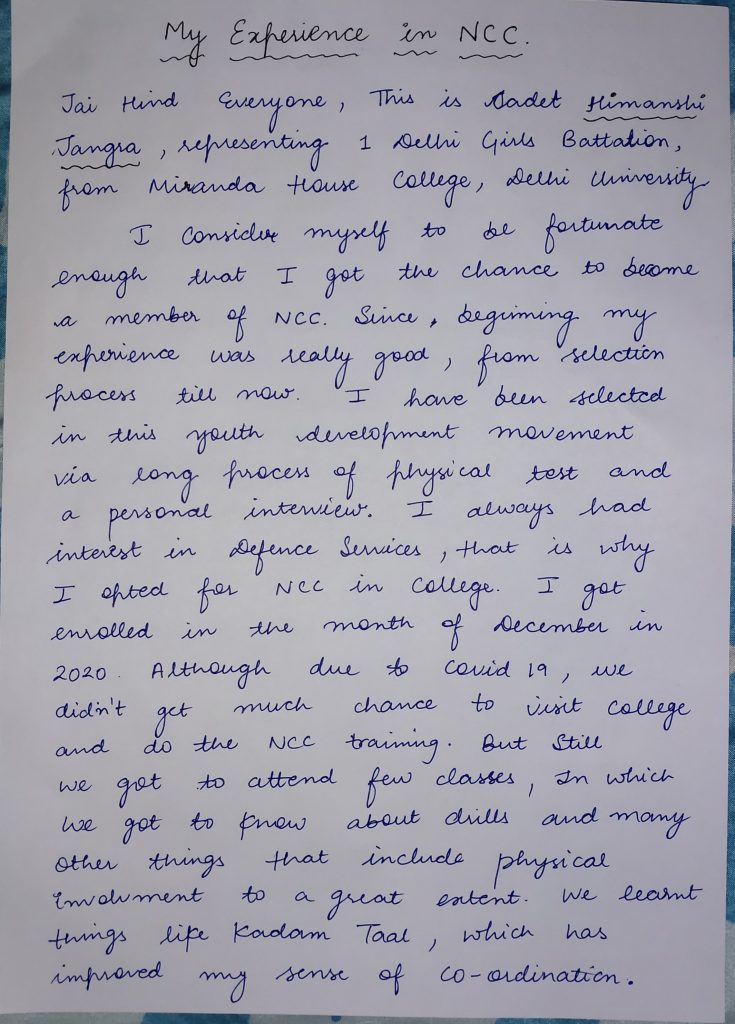 My Experience in NCC.
Jai Hind Everyone, This is Cadet Himanshi
Jangra, representing 1 Delhi Girls Battalion,
from Miranda House College, Delhi University
I consider myself to be fortunate
enough that I got the chance to become
a member of NCC. Since, beginning my
experience was really good, from selection
process till now. I have been selected
in this youth development movement
via long process of physical test and
a personal interview. I always had
interest in Defence Services, that is why
I opted for NCC in College. I got
enrolled in the month of December in
2020. Although due to Covid 19, we
didn't get much chance to visit College
and do the NCC training. But Still
we got to attend few classes, In which
we got to know about drills and many
other things that include physical
Involvment to a great extent. We learnt
things like Kadam Taal, which has
improved my sense of co-ordination.